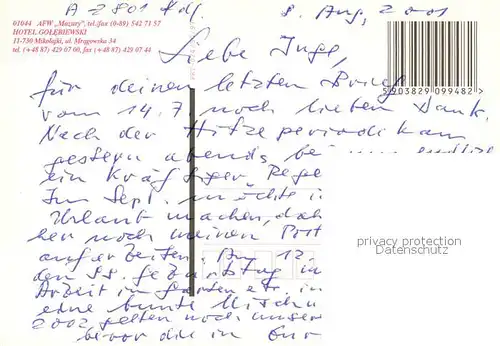 A 2801 Kdf.
8. Aug. 2001
01044 AFW „Mazury”, tel./fax (0-89) 542 71 57
HOTEL GOŁĘBIEWSKI
11-730 Mikołajki, ul. Mrągowska 34
tel. (+48 87) 429 07 00, fax (+48 87) 429 07 44
5903829099482
Liebe Inge,
für deinen letzten Brief
vom 14.7. noch lieben Dank.
Nach der Hitzeperiode kam
gestern abends
ein kräftiger Rege
Im Sept. möchte i
Urlaub machen, dah
her noch meinen Post
aufarbeiten. Am 12.
den 55. Geburtstag in
Arbeit im Garten etc. in
eine bunte Mischu
2002 gelten noch unser
bevor die in Eur
privacy protection
Datenschutz